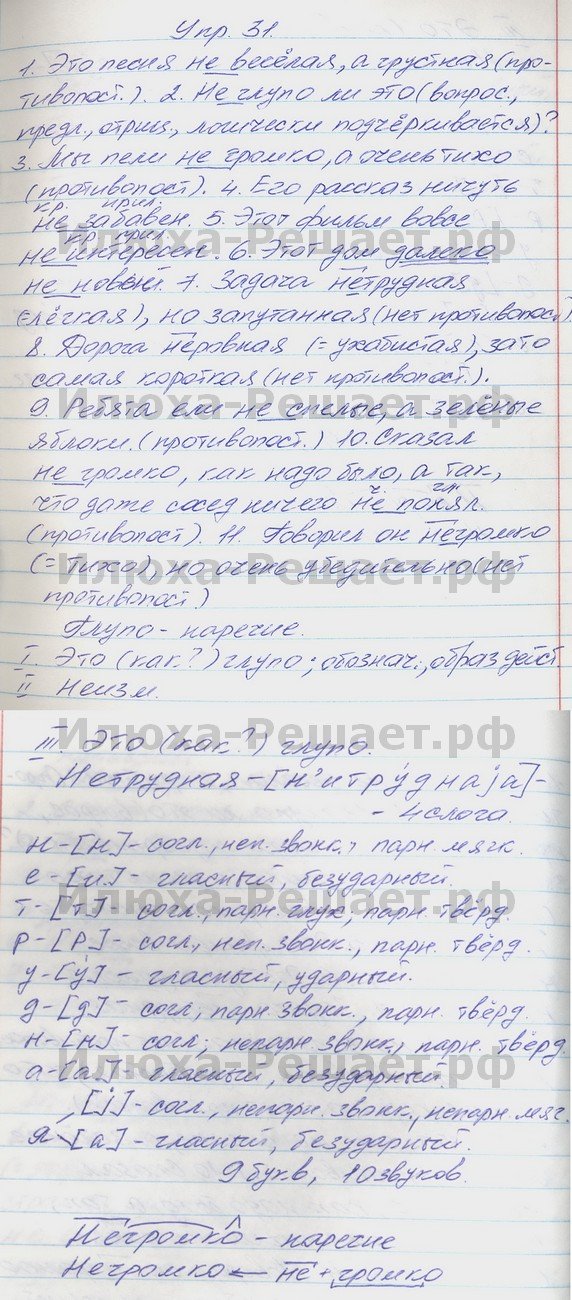 Упр. 31.
1. Это песня не весёлая, а грустная (про-
тивопост.). 2. Не глупо ли это (вопрос.,
предл., отриц., логически подчёркивается)?
3. Мы пели не громко, а очень тихо
(противопост.). 4. Его рассказ ничуть
кр. прил.
не забавен. 5. Этот фильм вовсе
кр. прил.
не интересен. 6. Этот дом далеко
не новый. 7. Задача нетрудная
(=лёгкая), но запутанная (нет противопост.)
8. Дорога неровная (=ухабистая), зато
самая короткая (нет противопост.).
9. Ребята ели не спелые, а зелёные
яблоки. (противопост.) 10. Сказал
не громко, как надо было, а так,
ч. гл.
что даже сосед ничего не понял.
(противопост). 11. Говорил он негромко
(=тихо), но очень убедительно (нет
противопост.)
Глупо - наречие.
I. Это (как?) глупо; обознач., образ дейст
II Неизм.
III. Это (как?) глупо.
Нетрудная - [н'итру́днаjа] -
- 4 слога.
н - [н] - согл., неп. звонк., парн. мягк.
е - [и] - гласный, безударный.
т - [т] - согл., парн. глух., парн. твёрд.
р - [р] - согл., неп. звонк., парн. твёрд.
у - [у́] - гласный, ударный.
д - [д] - согл., парн. звонк., парн. твёрд.
н - [н] - согл., непарн. звонк., парн. твёрд.
а - [а] - гласный, безударный.
[j] - согл., непарн. звонк., непарн. мяг.
я [а] - гласный, безударный.
9 букв, 10 звуков.
Негромко - наречие
Негромко ← не + громко
Илюха-Решает.рф
Илюха-Решает.рф
Илюха-Решает.рф
Илюха-Решает.рф
Илюха-Решает.рф
Илюха-Решает.рф
Илюха-Решает.рф
Илюха-Решает.рф